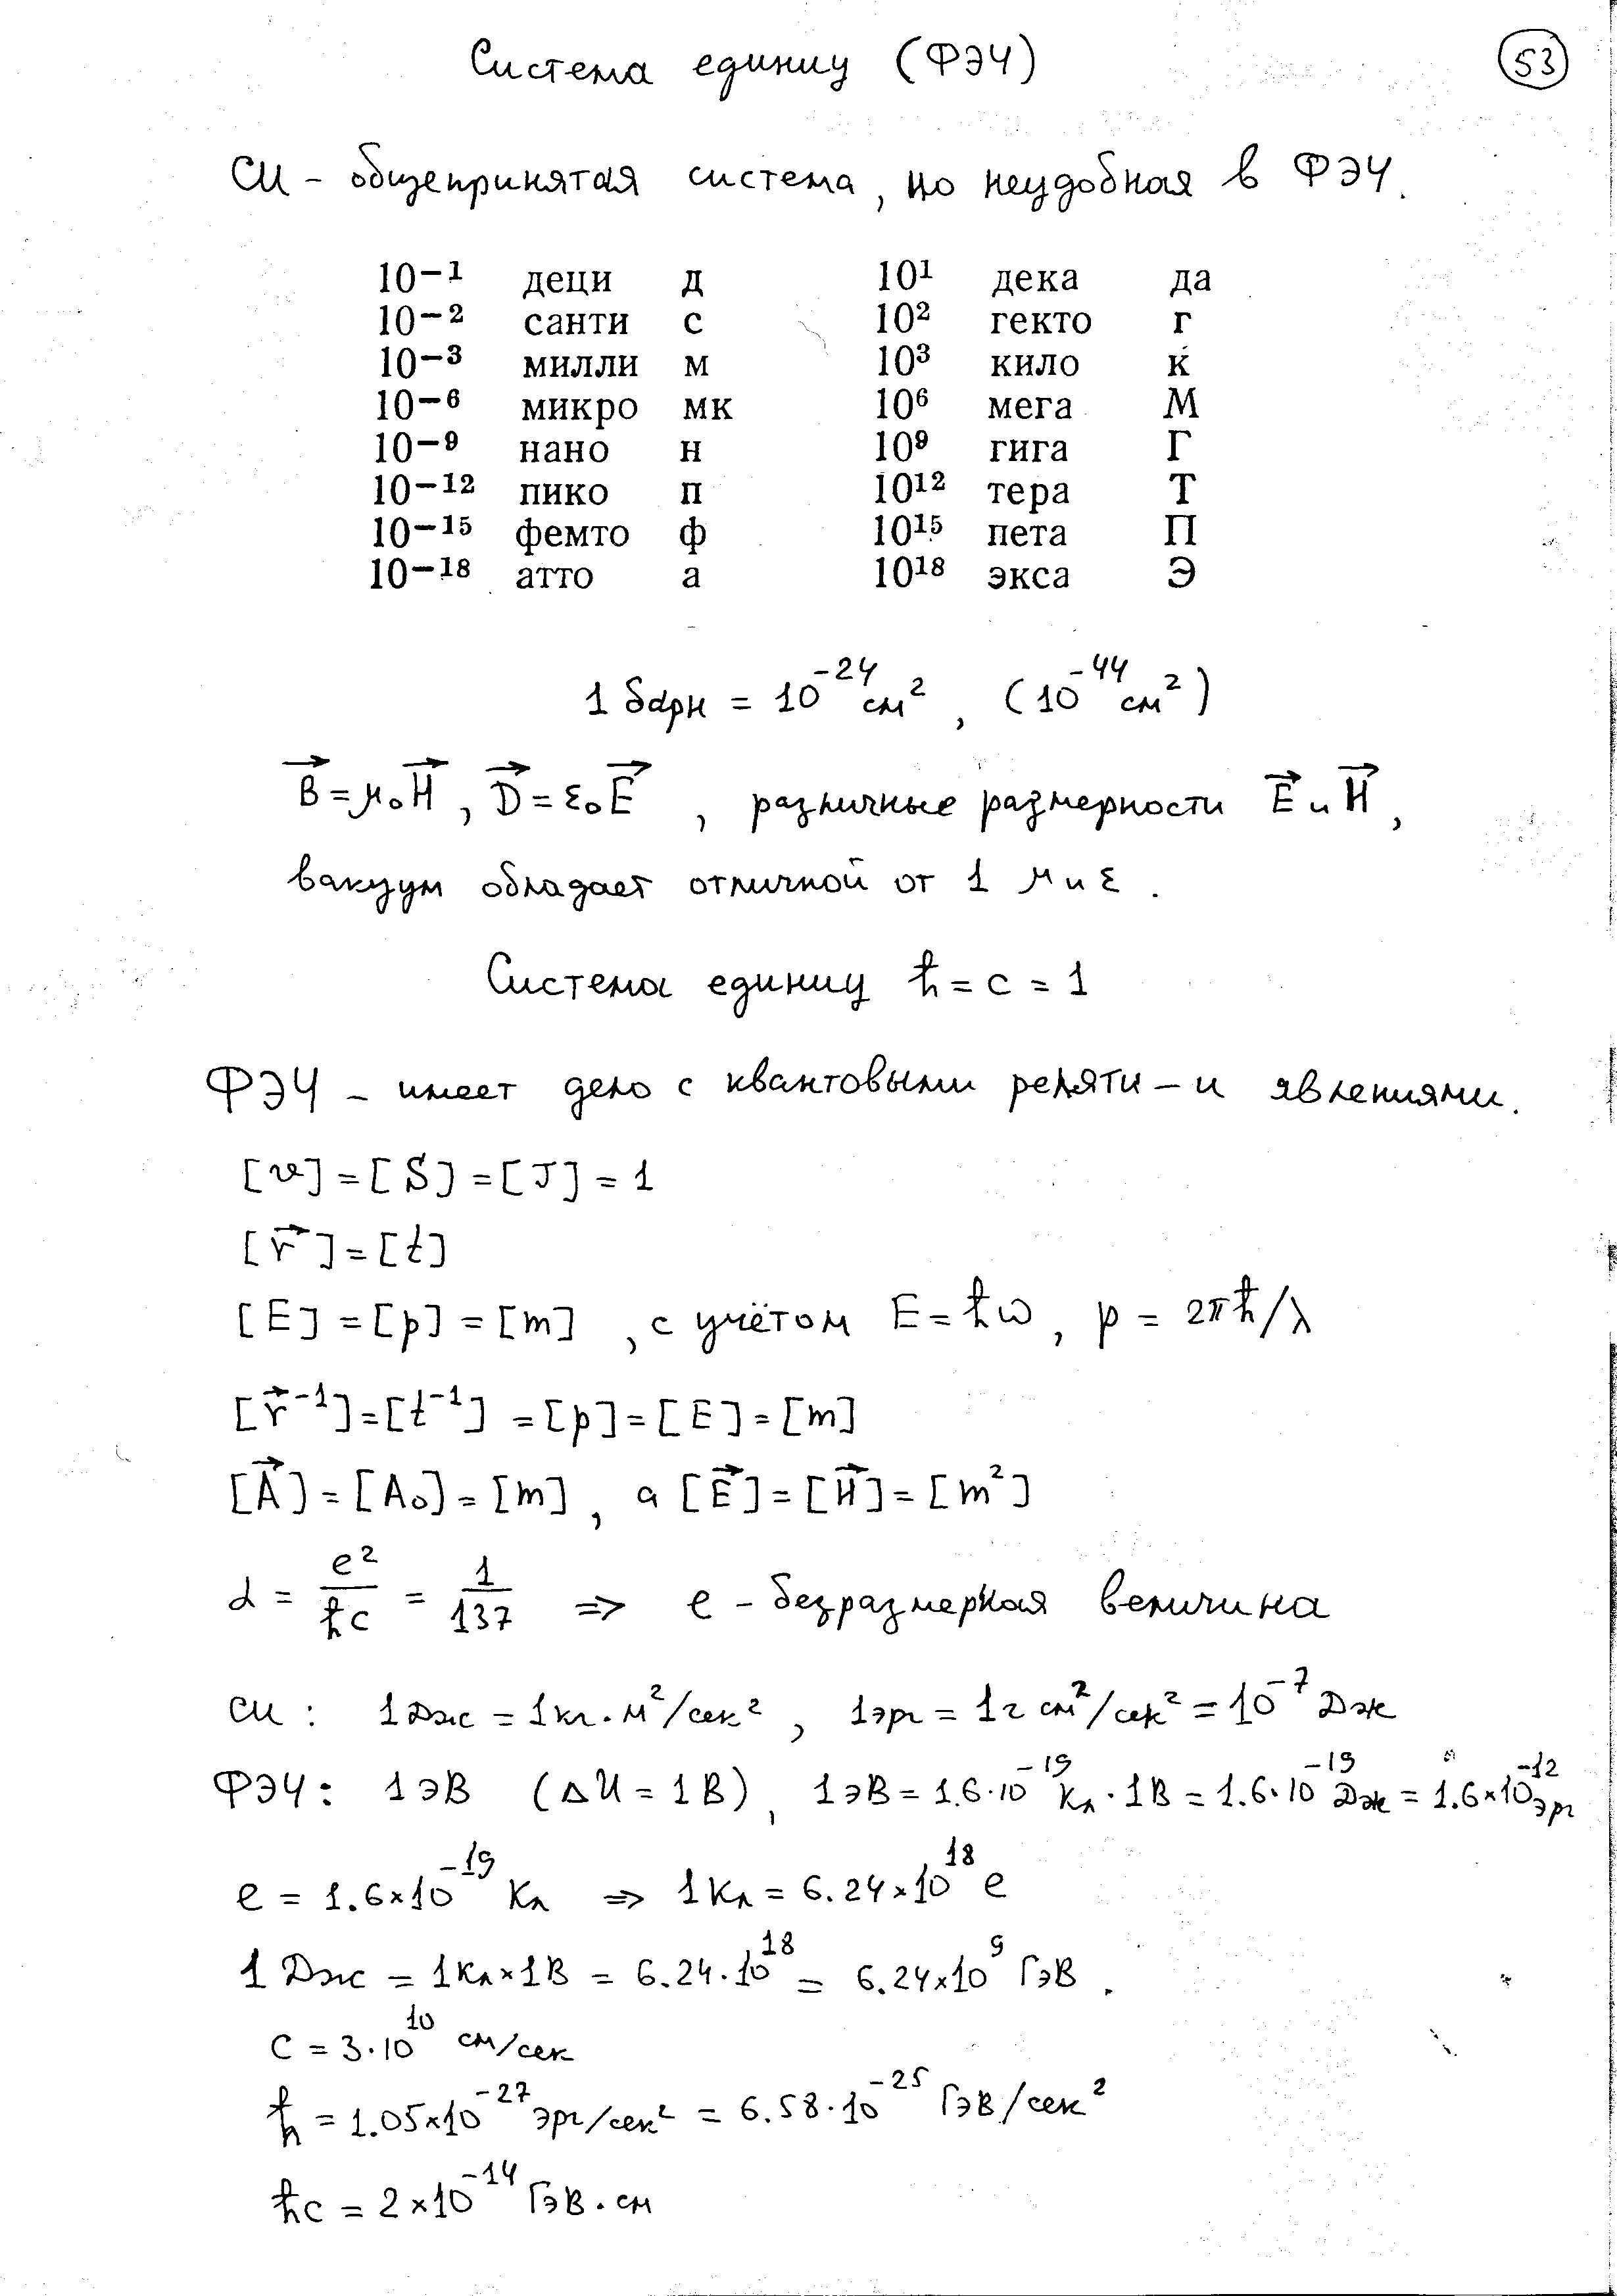 Система единиц (ФЭЧ)
53
СИ – общепринятая система, но неудобная в ФЭЧ.
10−1 деци д 10¹ дека да
10−2 санти с 10² гекто г
10−3 милли м 10³ кило к
10−6 микро мк 10⁶ мега М
10−9 нано н 10⁹ гига Г
10−12 пико п 10¹² тера Т
10−15 фемто ф 10¹⁵ пета П
10−18 атто а 10¹⁸ экса Э
1 барн = 10⁻²⁴ см², (10⁻⁴⁴ см²)
B⃗ = μ₀H⃗, D⃗ = ε₀E⃗, различные размерности E⃗ и H⃗,
вакуум обладает отличной от 1 μ и ε.
Система единиц ħ = c = 1
ФЭЧ – имеет дело с квантовыми реляти–и явлениями.
[v] = [S] = [J] = 1
[r⃗] = [t]
[E] = [p] = [m], с учётом E = ħω, p = 2πħ/λ
[r⃗⁻¹] = [t⁻¹] = [p] = [E] = [m]
[A⃗] = [A₀] = [m], а [E⃗] = [H⃗] = [m²]
α = e²/ħc = 1/137 ⇒ e – безразмерная величина
СИ: 1Дж = 1кг·м²/сек², 1эрг = 1г см²/сек² = 10⁻⁷ Дж
ФЭЧ: 1эВ (ΔU = 1В), 1эВ = 1.6·10⁻¹⁹ Кл·1В = 1.6·10⁻¹⁹ Дж = 1.6×10⁻¹² эрг
e = 1.6×10⁻¹⁹ Кл ⇒ 1Кл = 6.24×10¹⁸ e
1 Дж = 1Кл×1В = 6.24·10¹⁸ = 6.24×10⁹ ГэВ.
c = 3·10¹⁰ см/сек
ħ = 1.05×10⁻²⁷ эрг/сек² = 6.58·10⁻²⁵ ГэВ/сек²
ħc = 2×10⁻¹⁴ ГэВ·см